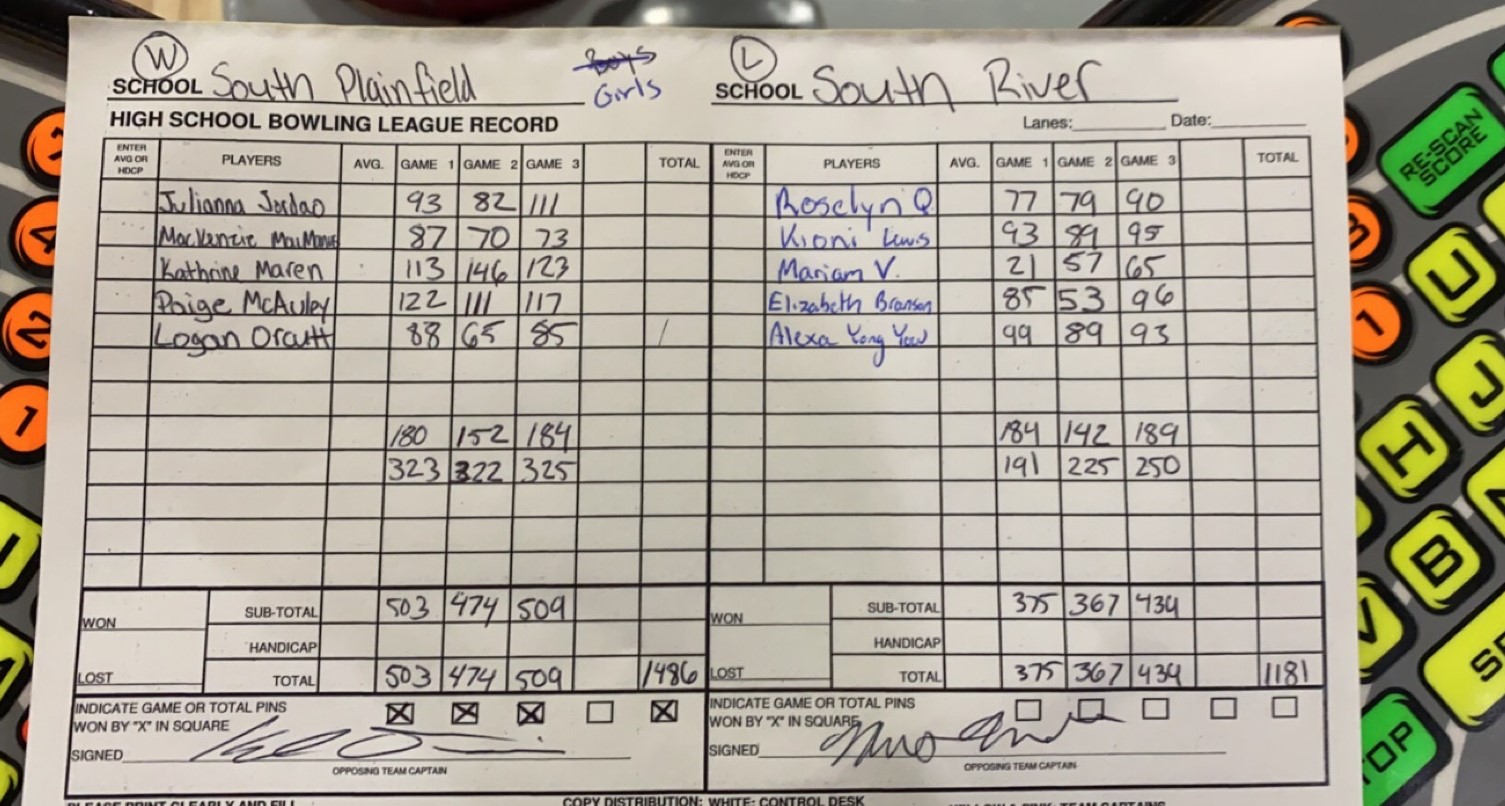 W L
SCHOOL South Plainfield Boys Girls SCHOOL South River
HIGH SCHOOL BOWLING LEAGUE RECORD Lanes: Date:
ENTER AVG OR HDCP PLAYERS AVG. GAME 1 GAME 2 GAME 3 TOTAL ENTER AVG OR HDCP PLAYERS AVG. GAME 1 GAME 2 GAME 3 TOTAL
Julianna Jordao 93 82 111 Roselyn Q 77 79 90
Mackenzie MacManus 87 70 73 Kioni Lewis 93 89 95
Kathrine Maren 113 146 123 Mariam V. 21 57 65
Paige McAuley 122 111 117 Elizabeth Branson 85 53 96
Logan Orcutt 88 65 85 / Alexa Yong Yow 99 89 93
180 152 184 184 142 189
323 322 325 191 225 250
WON SUB-TOTAL 503 474 509 WON SUB-TOTAL 375 367 434
HANDICAP HANDICAP
LOST TOTAL 503 474 509 1486 LOST TOTAL 375 367 434 1181
INDICATE GAME OR TOTAL PINS INDICATE GAME OR TOTAL PINS
WON BY "X" IN SQUARE X X X X WON BY "X" IN SQUARE
SIGNED SIGNED
OPPOSING TEAM CAPTAIN OPPOSING TEAM CAPTAIN
PLEASE PRINT CLEARLY AND FILL COPY DISTRIBUTION: WHITE: CONTROL DESK
4
2
1
RE-SCAN
SCORE
3
1
U
J
H
B
V
N